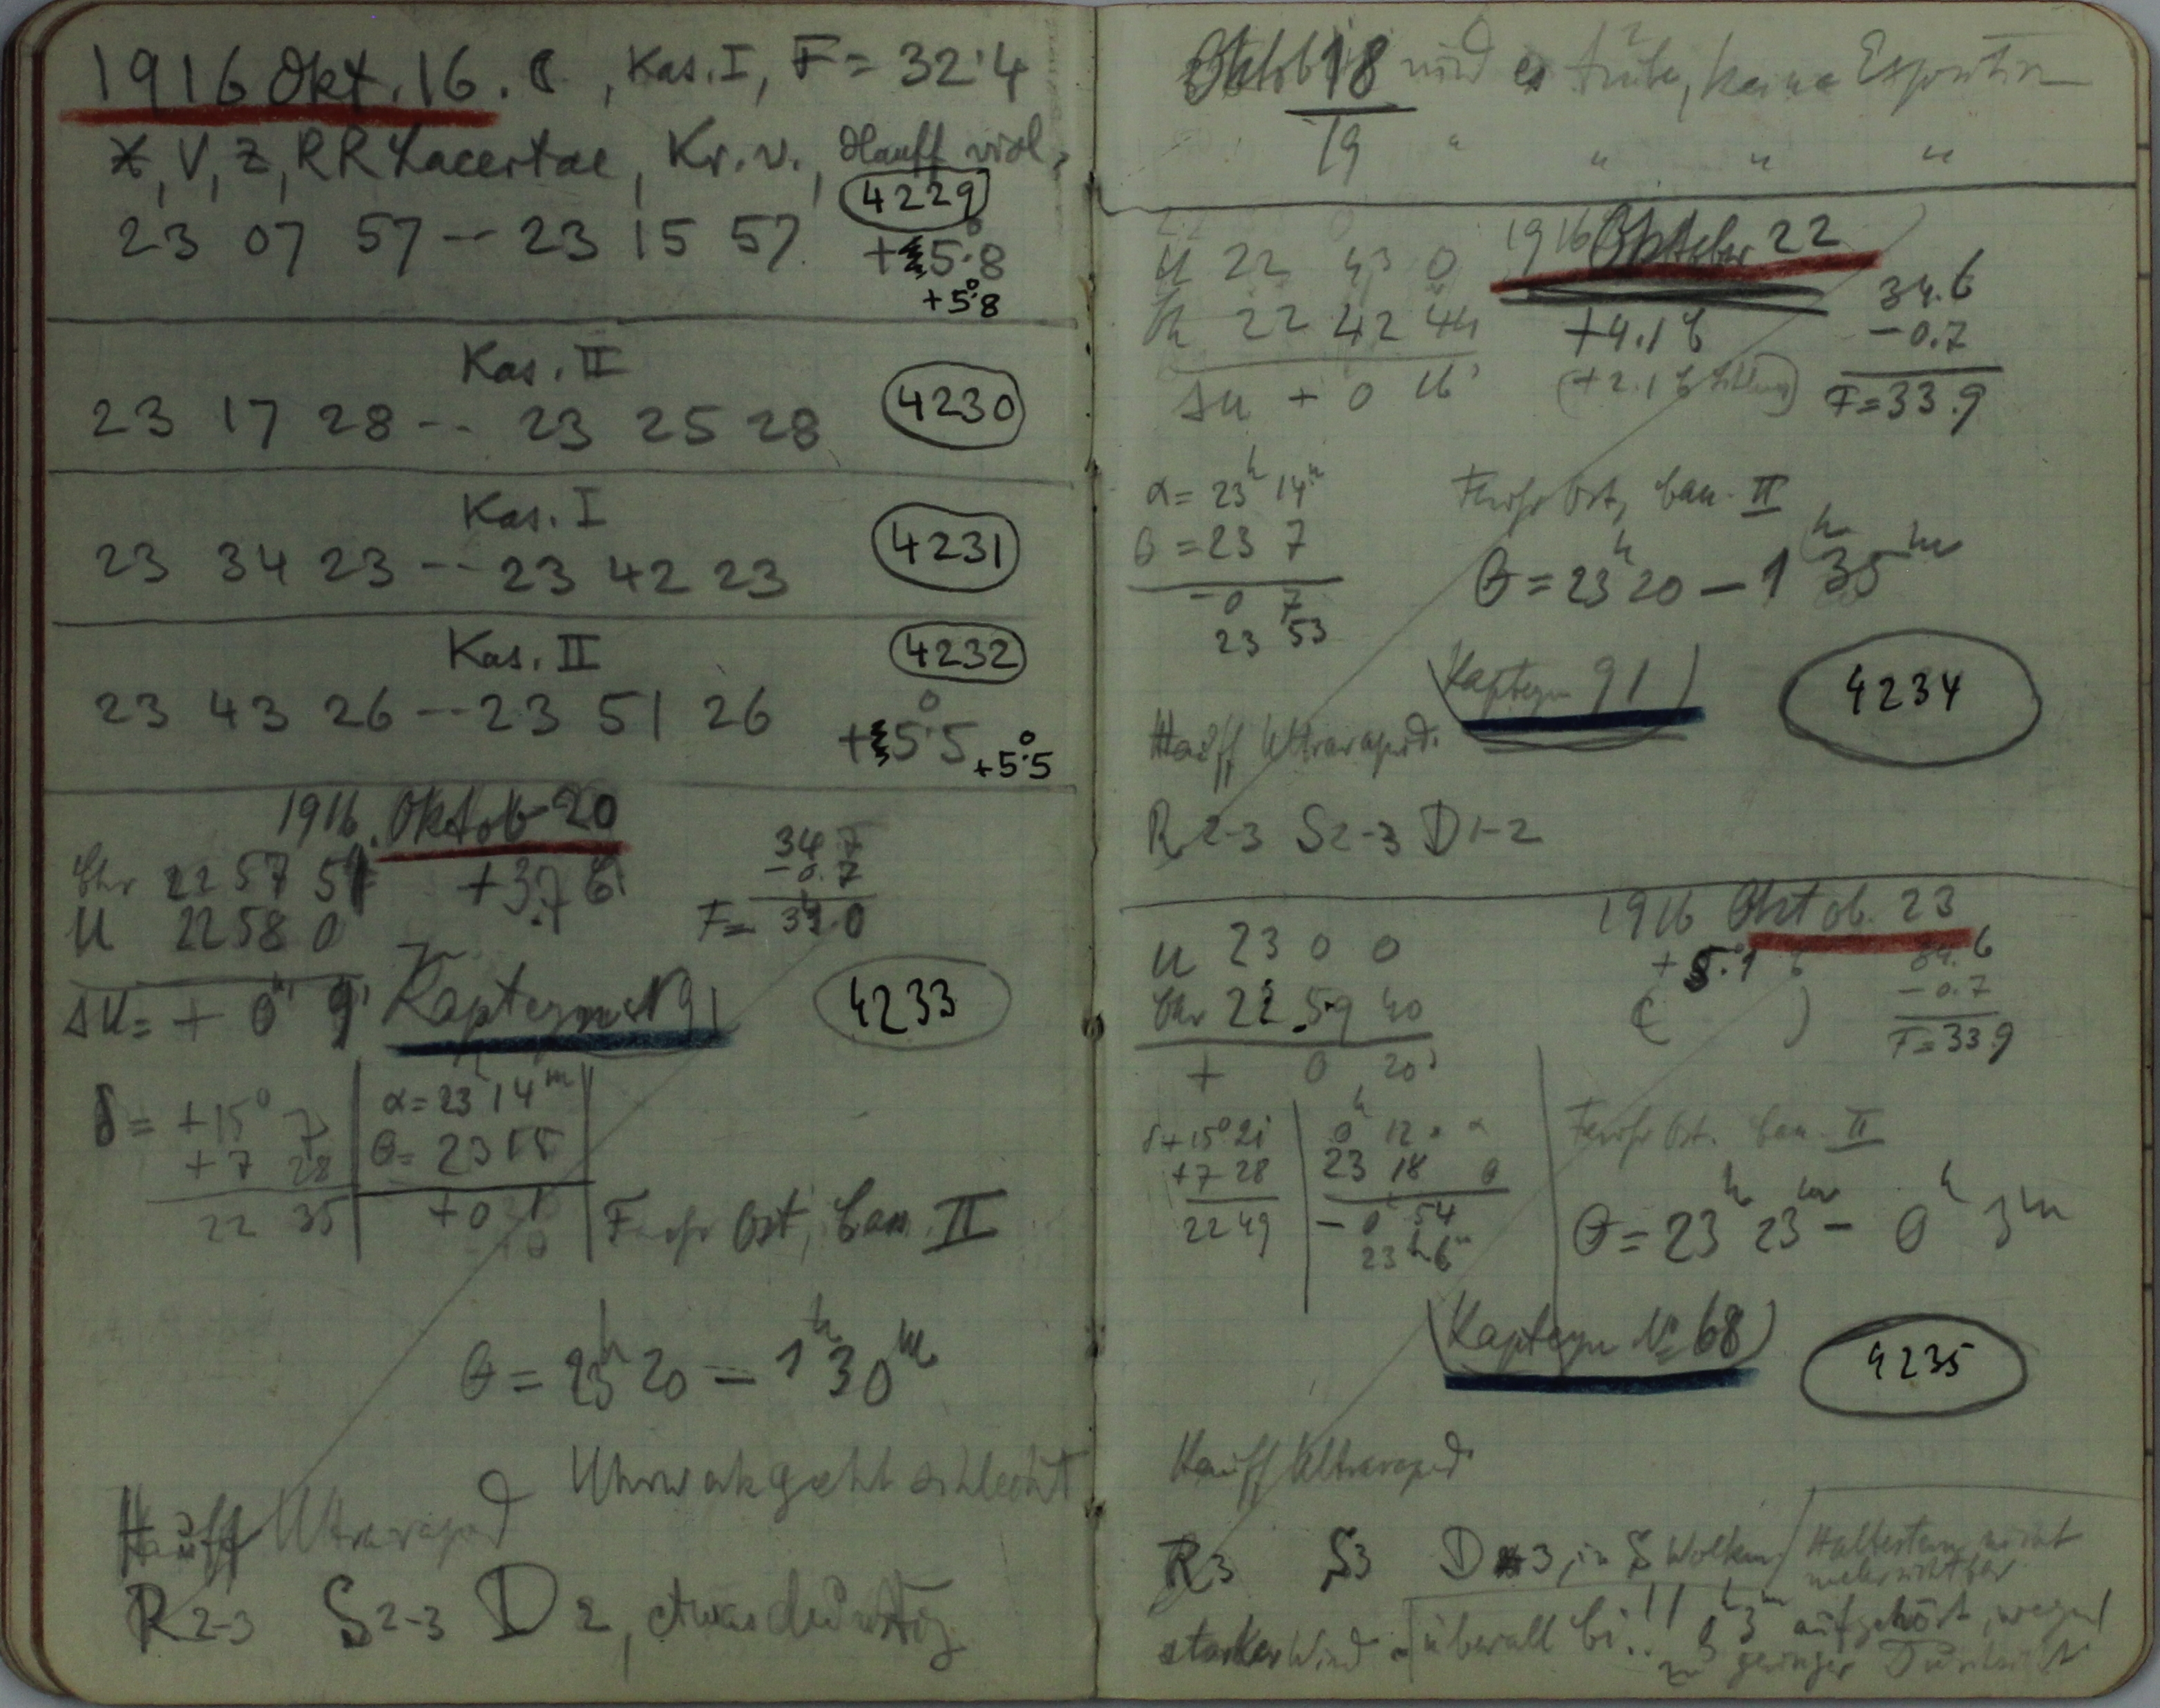 1916 Okt. 16. C, Kas. I, F = 32.4
X, V, Z, RR Lacertae, Kr. v., Hauff viol,
4229
23 07 57 -- 23 15 57
+5°.8
+5°.8
Kas. II
23 17 28 -- 23 25 28
4230
Kas. I
23 34 23 -- 23 42 23
4231
Kas. II
4232
23 43 26 -- 23 51 26
+5°.5
+5°.5
1916. Oktob 20
Chr 22 57 51
+3.7 C
34.7
-0.7
U 22 58 0
F = 34.0
ΔU = + 0 9
Kapteyn 91
4233
δ = +15° 7
+7 28
22 35
α = 23 14 m
θ = 23 15
+0 1
Ost, Cass. II
θ = 23h 20 - 1h 30m
Uhrwerk geht schlecht
Hauff Ultrarapid
R 2-3 S 2-3 D 2, etwas dunstig
Oktob 18 wird es trübe, keine Exposition
19 " " " "
1916 Oktober 22
U 22 43 0
22 42 44
ΔU + 0 16s
+4.1 C
34.6
-0.7
F = 33.9
α = 23h 14m
θ = 23 7
-0 7
23 53
Ost, Cass. II
θ = 23h 20 - 1h 35m
(Kapteyn 91)
4234
Hauff Ultrarapid.
R 2-3 S 2-3 D 1-2
1916 Oktob. 23
U 23 0 0
Chr 22 59 40
+ 0 20s
+5.1 C
( )
34.6
-0.7
F = 33.9
δ + 15° 21
+7 28
22 49
0h 12 α
23 18 θ
- 0 54
23h 6m
Ost. Cass. II
θ = 23h 23m - 0h 3m
(Kapteyn No 68)
4235
Hauff Ultrarapid
R 3 S 3 D 3, in S Wolken
Haltestern nicht
mehr sichtbar
starker Wind überall Ci..!! 0h 3m aufgehört, wegen
zu geringer Dursicht